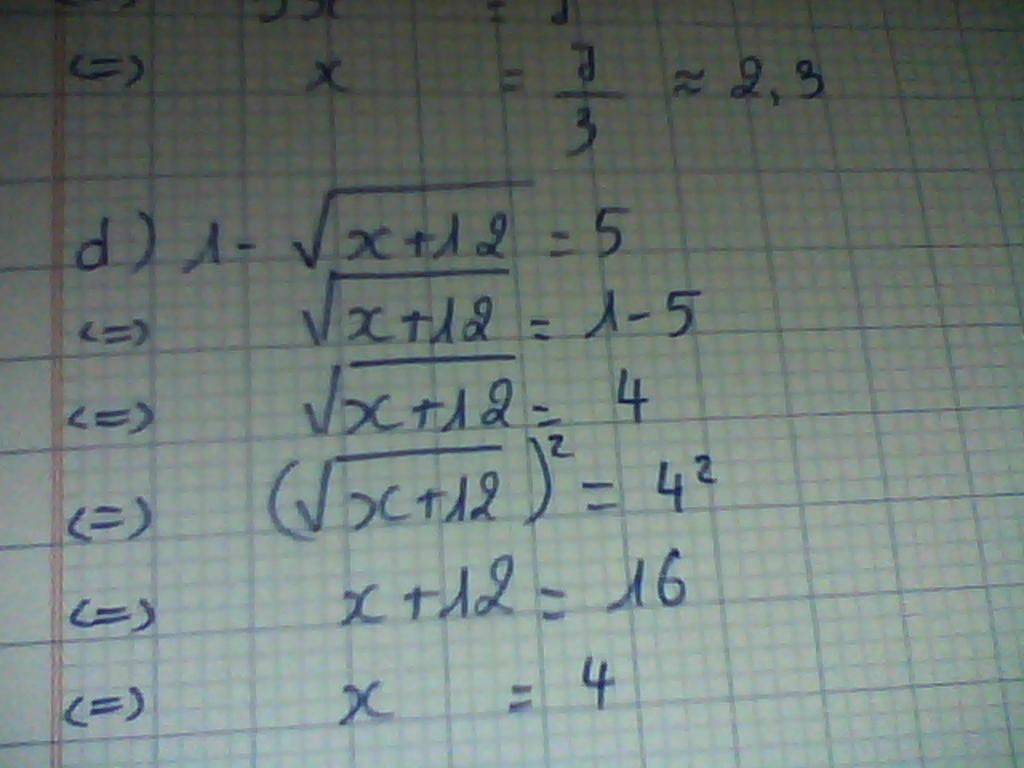 (=) x = 7/3 ≈ 2,3
d) 1 - √(x+12) = 5
(=) √(x+12) = 1-5
(=) √(x+12) = 4
(=) (√(x+12))² = 4²
(=) x+12 = 16
(=) x = 4